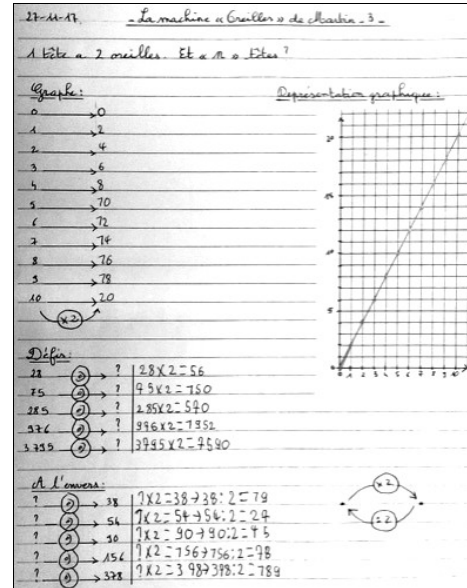 27-11-17 - La machine « Oreilles » de Martin - 3 -
1 tête a 2 oreilles. Et « n » têtes ?
Graphe :
0 → 0
1 → 2
2 → 4
3 → 6
4 → 8
5 → 10
6 → 12
7 → 14
8 → 16
9 → 18
10 → 20
×2
Représentation graphique :
20
15
10
5
0 1 2 3 4 5 6 7 8 9 10
Défis :
28 → ? | 28×2=56
75 → ? | 75×2=150
285 → ? | 285×2=570
976 → ? | 976×2=1952
3795 → ? | 3795×2=7590
A l'envers :
? → 38 | ?×2=38→38:2=19
? → 54 | ?×2=54→54:2=27
? → 90 | ?×2=90→90:2=45
? → 156 | ?×2=156→156:2=78
? → 378 | ?×2=378→378:2=189
×2
:2